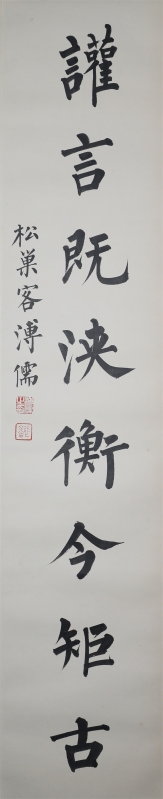 讙言既浹衡今矩古
松巢客溥儒